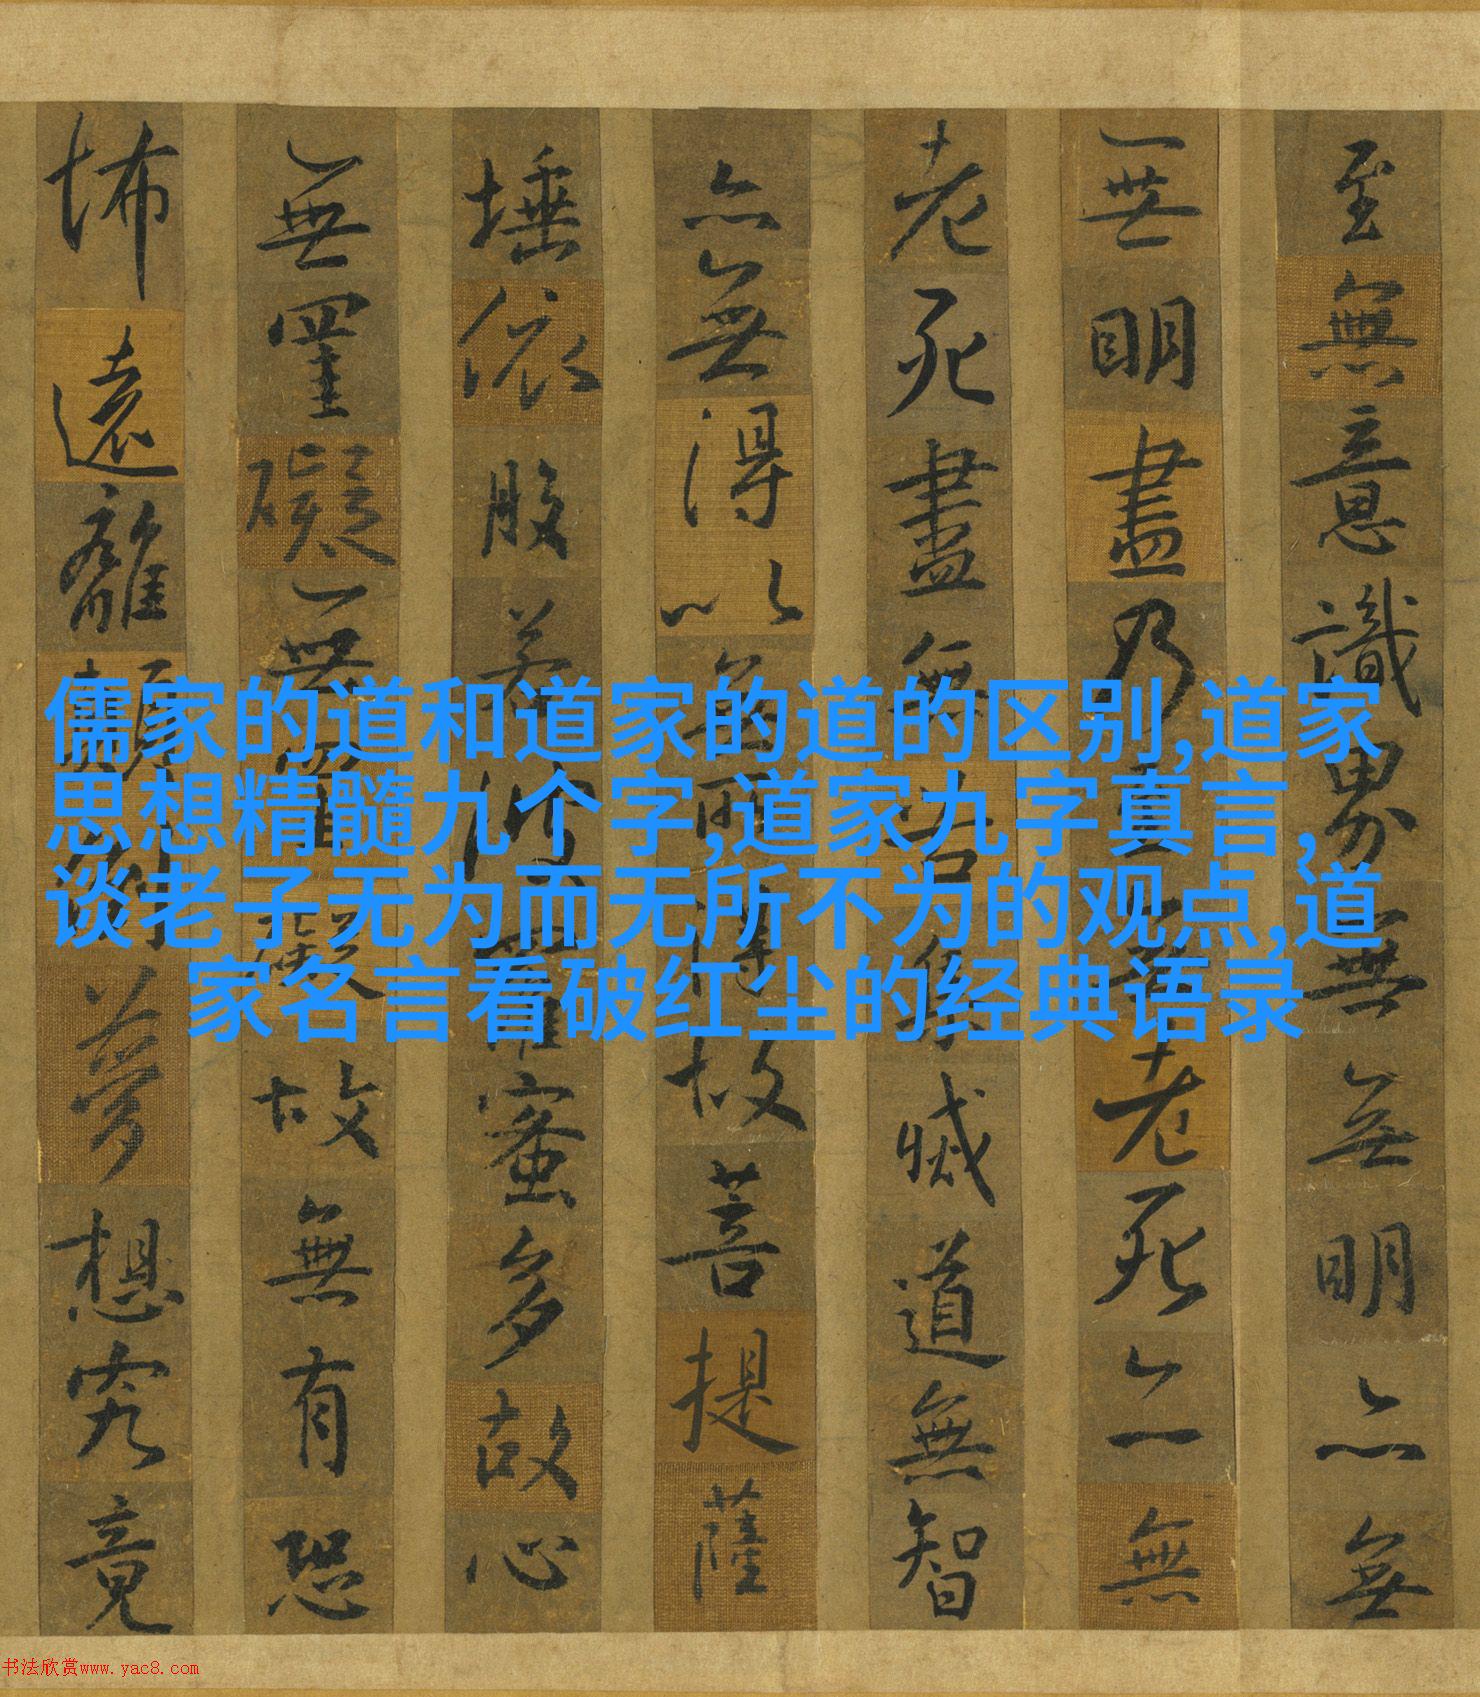 儒家的道和道家的道的区别,道家
思想精髓九个字,道家九字真言,
谈老子无为而无所不为的观点,道
家名言看破红尘的经典语录
至無意識界無無明亦無
無明盡乃至無老死亦無
老死盡無苦集滅道無智
亦無得以無所得故菩提薩
埵依般若波羅蜜多故心
無罣礙無罣礙故無有恐
怖遠離顛倒夢想究竟
书法欣赏www.yac8.com